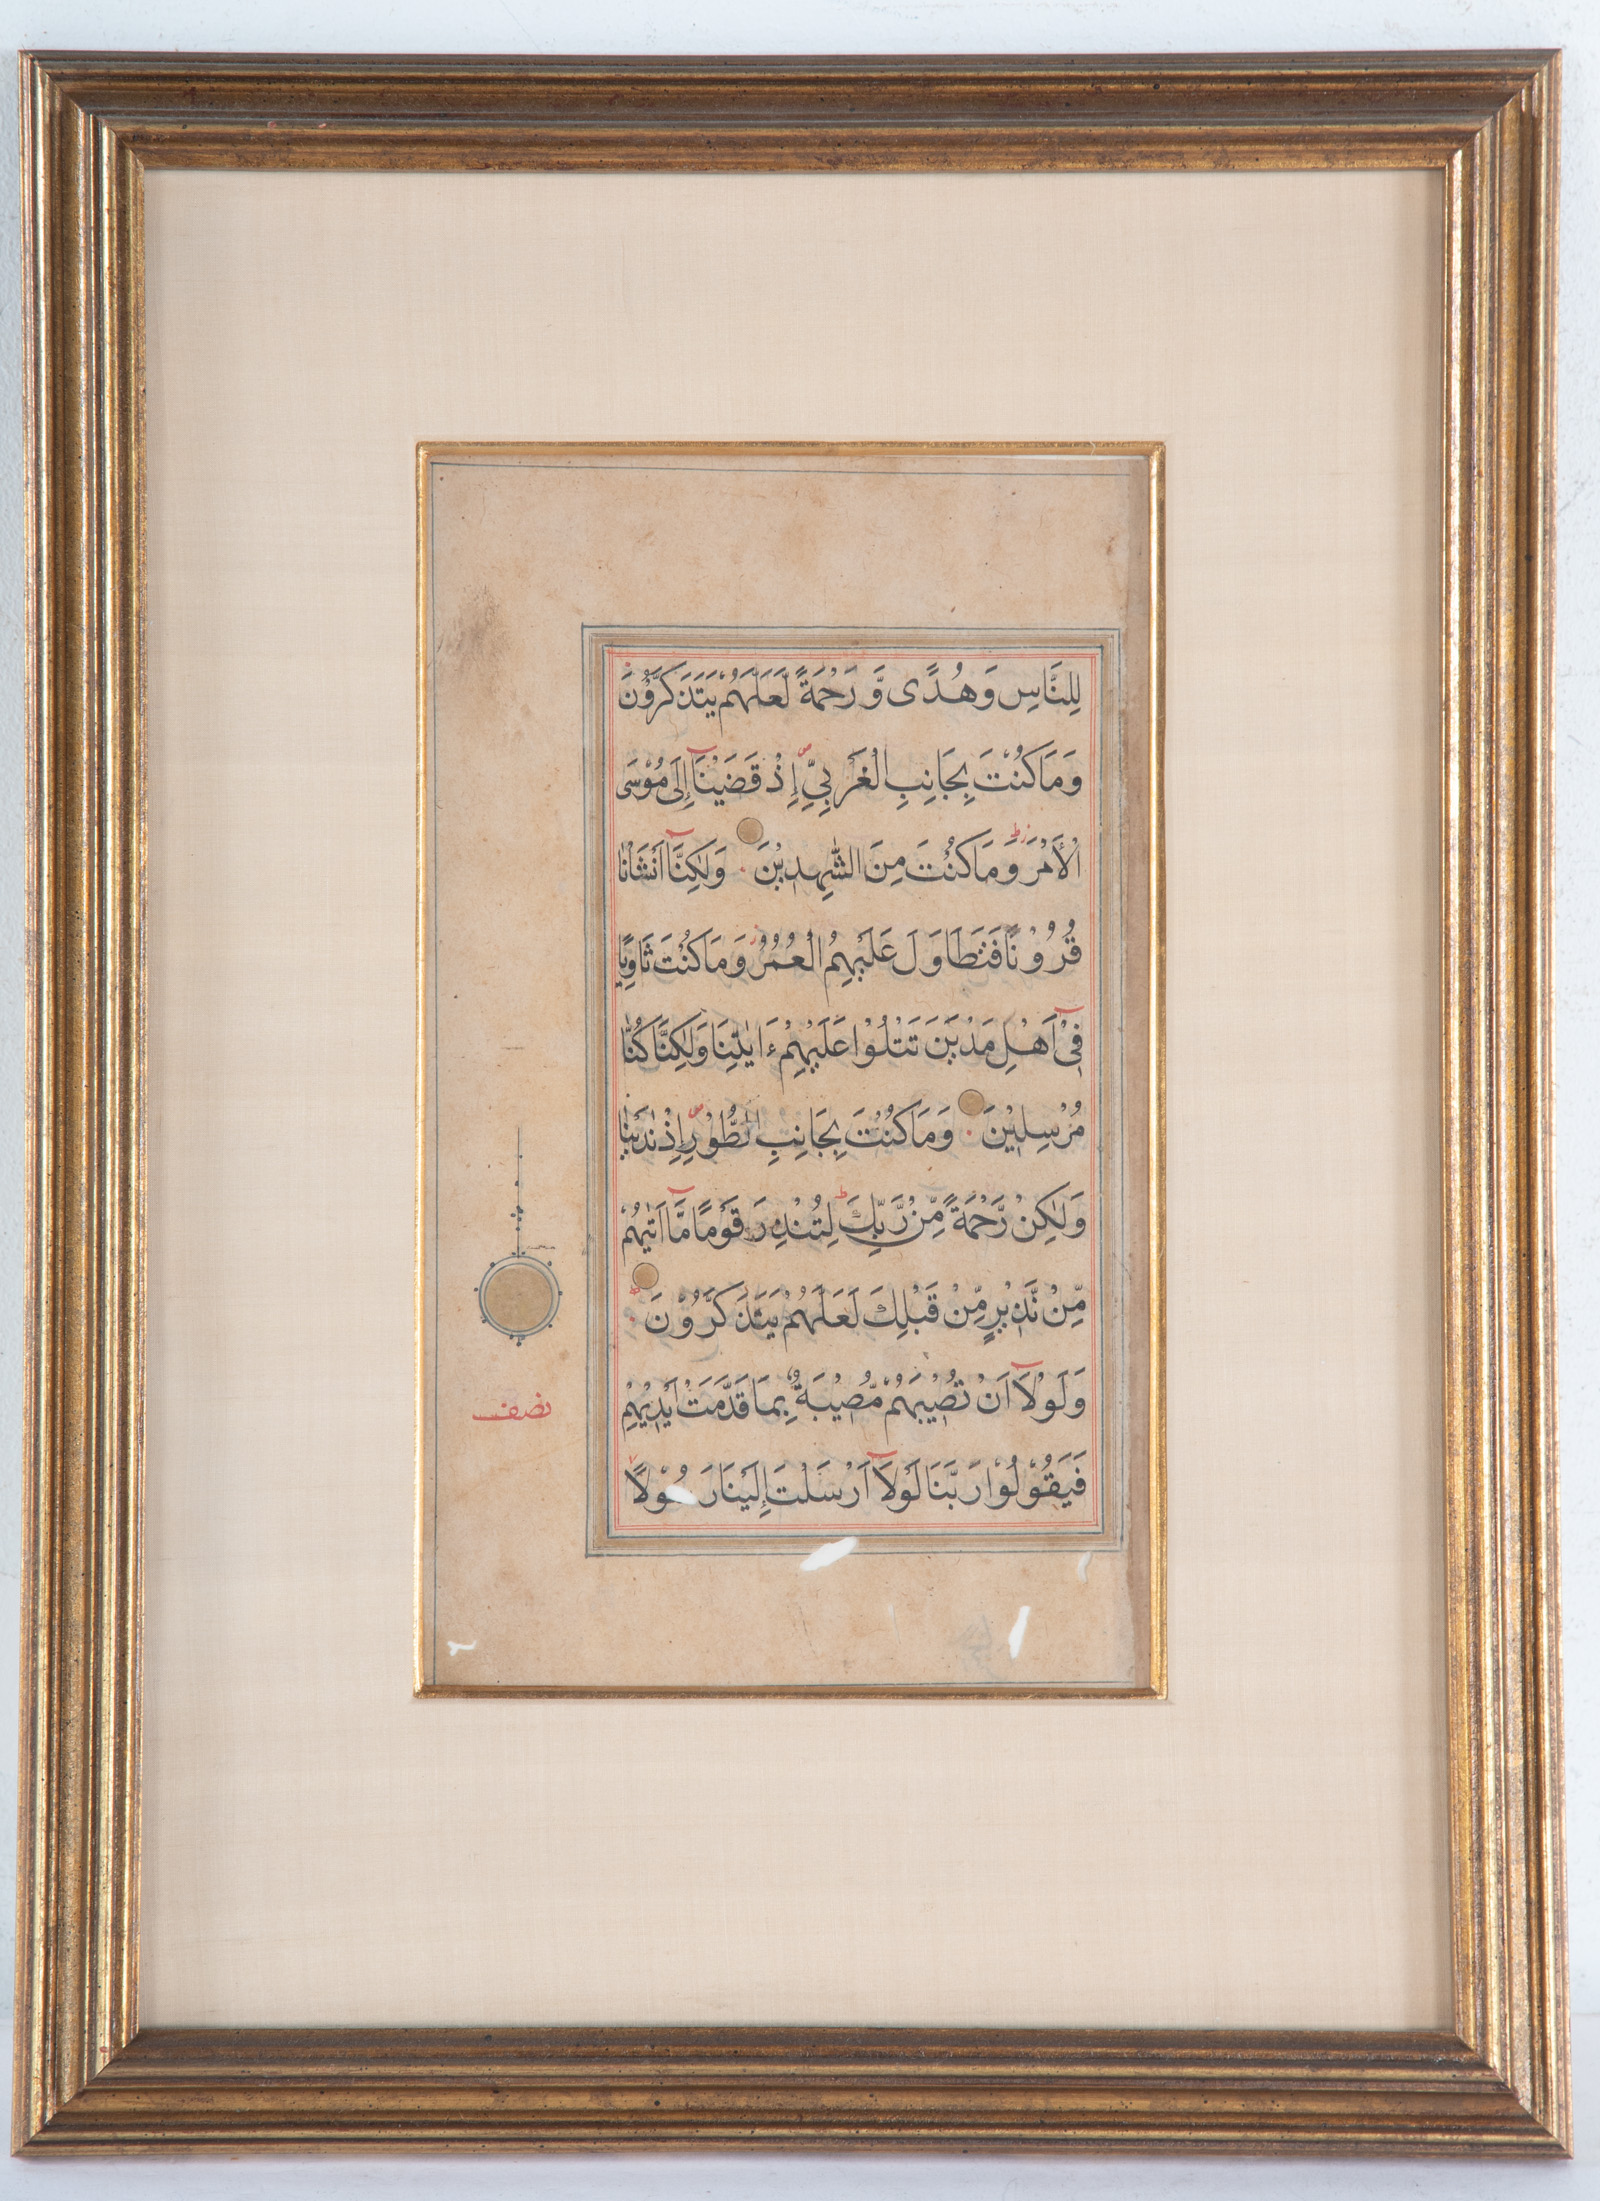 لِلنَّاسِ وَهُدًى وَّرَحْمَةً لَّعَلَّهُمْ يَتَذَكَّرُوْنَ
وَمَا كُنْتَ بِجَانِبِ الْغَرْبِيِّ اِذْ قَضَيْنَآ اِلٰى مُوْسَى
الْاَمْرَ وَمَا كُنْتَ مِنَ الشّٰهِدِيْنَ وَلٰكِنَّآ اَنْشَاْنَا
قُرُوْنًا فَتَطَاوَلَ عَلَيْهِمُ الْعُمُرُ وَمَا كُنْتَ ثَاوِيًا
فِيْٓ اَهْلِ مَدْيَنَ تَتْلُوْا عَلَيْهِمْ ءَايٰتِنَا وَلٰكِنَّا كُنَّا
مُرْسِلِيْنَ وَمَا كُنْتَ بِجَانِبِ الطُّوْرِ اِذْ نَادَيْنَا
وَلٰكِنْ رَّحْمَةً مِّنْ رَّبِّكَ لِتُنْذِرَ قَوْمًا مَّآ اَتٰىهُمْ
مِّنْ نَّذِيْرٍ مِّنْ قَبْلِكَ لَعَلَّهُمْ يَتَذَكَّرُوْنَ
وَلَوْلَآ اَنْ تُصِيْبَهُمْ مُّصِيْبَةٌ بِمَا قَدَّمَتْ اَيْدِيْهِمْ
فَيَقُوْلُوْا رَبَّنَا لَوْلَآ اَرْسَلْتَ اِلَيْنَا رَسُوْلًا
نصف